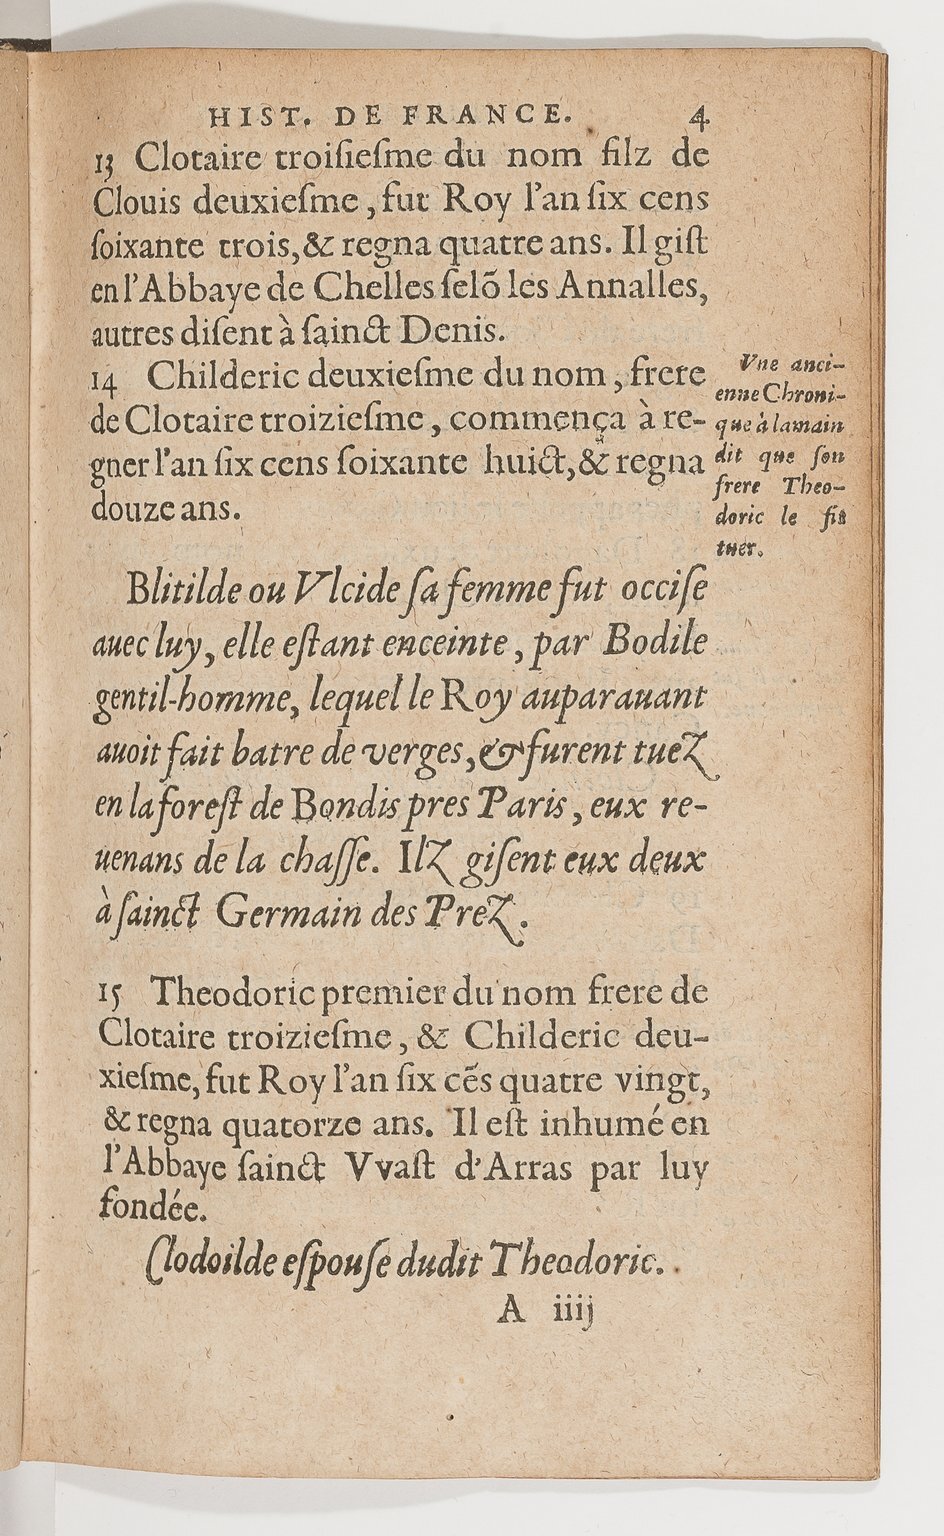 HIST. DE FRANCE. 4
13 Clotaire troiſieſme du nom filz de
Clouis deuxieſme, fut Roy l'an ſix cens
ſoixante trois, & regna quatre ans. Il giſt
en l'Abbaye de Chelles ſelõ les Annalles,
autres diſent à ſainct Denis.
14 Childeric deuxieſme du nom, frere
de Clotaire troizieſme, commença à re-
gner l'an ſix cens ſoixante huict, & regna
douze ans.
Vne anci-
enne Chroni-
que à la main
dit que ſon
frere Theo-
doric le fit
tuer.
Blitilde ou Vlcide ſa femme fut occiſe
auec luy, elle eſtant enceinte, par Bodile
gentil-homme, lequel le Roy auparauant
auoit fait batre de verges, & furent tuez
en la foreſt de Bondis pres Paris, eux re-
uenans de la chaſſe. Ilz giſent eux deux
à ſainct Germain des Prez.
15 Theodoric premier du nom frere de
Clotaire troizieſme, & Childeric deu-
xieſme, fut Roy l'an ſix cẽs quatre vingt,
& regna quatorze ans. Il eſt inhumé en
l'Abbaye ſainct Vvaſt d'Arras par luy
fondée.
Clodoilde eſpouſe dudit Theodoric.
A iiij